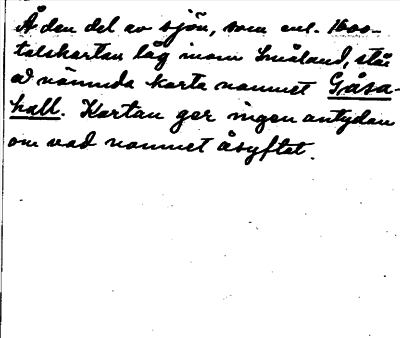 Å den del av sjön, som enl. 1600-
talskartan låg inom Småland, står
å nämnda karta namnet Gåsa-
hall. Kartan ger ingen antydan
om vad namnet åsyftat.